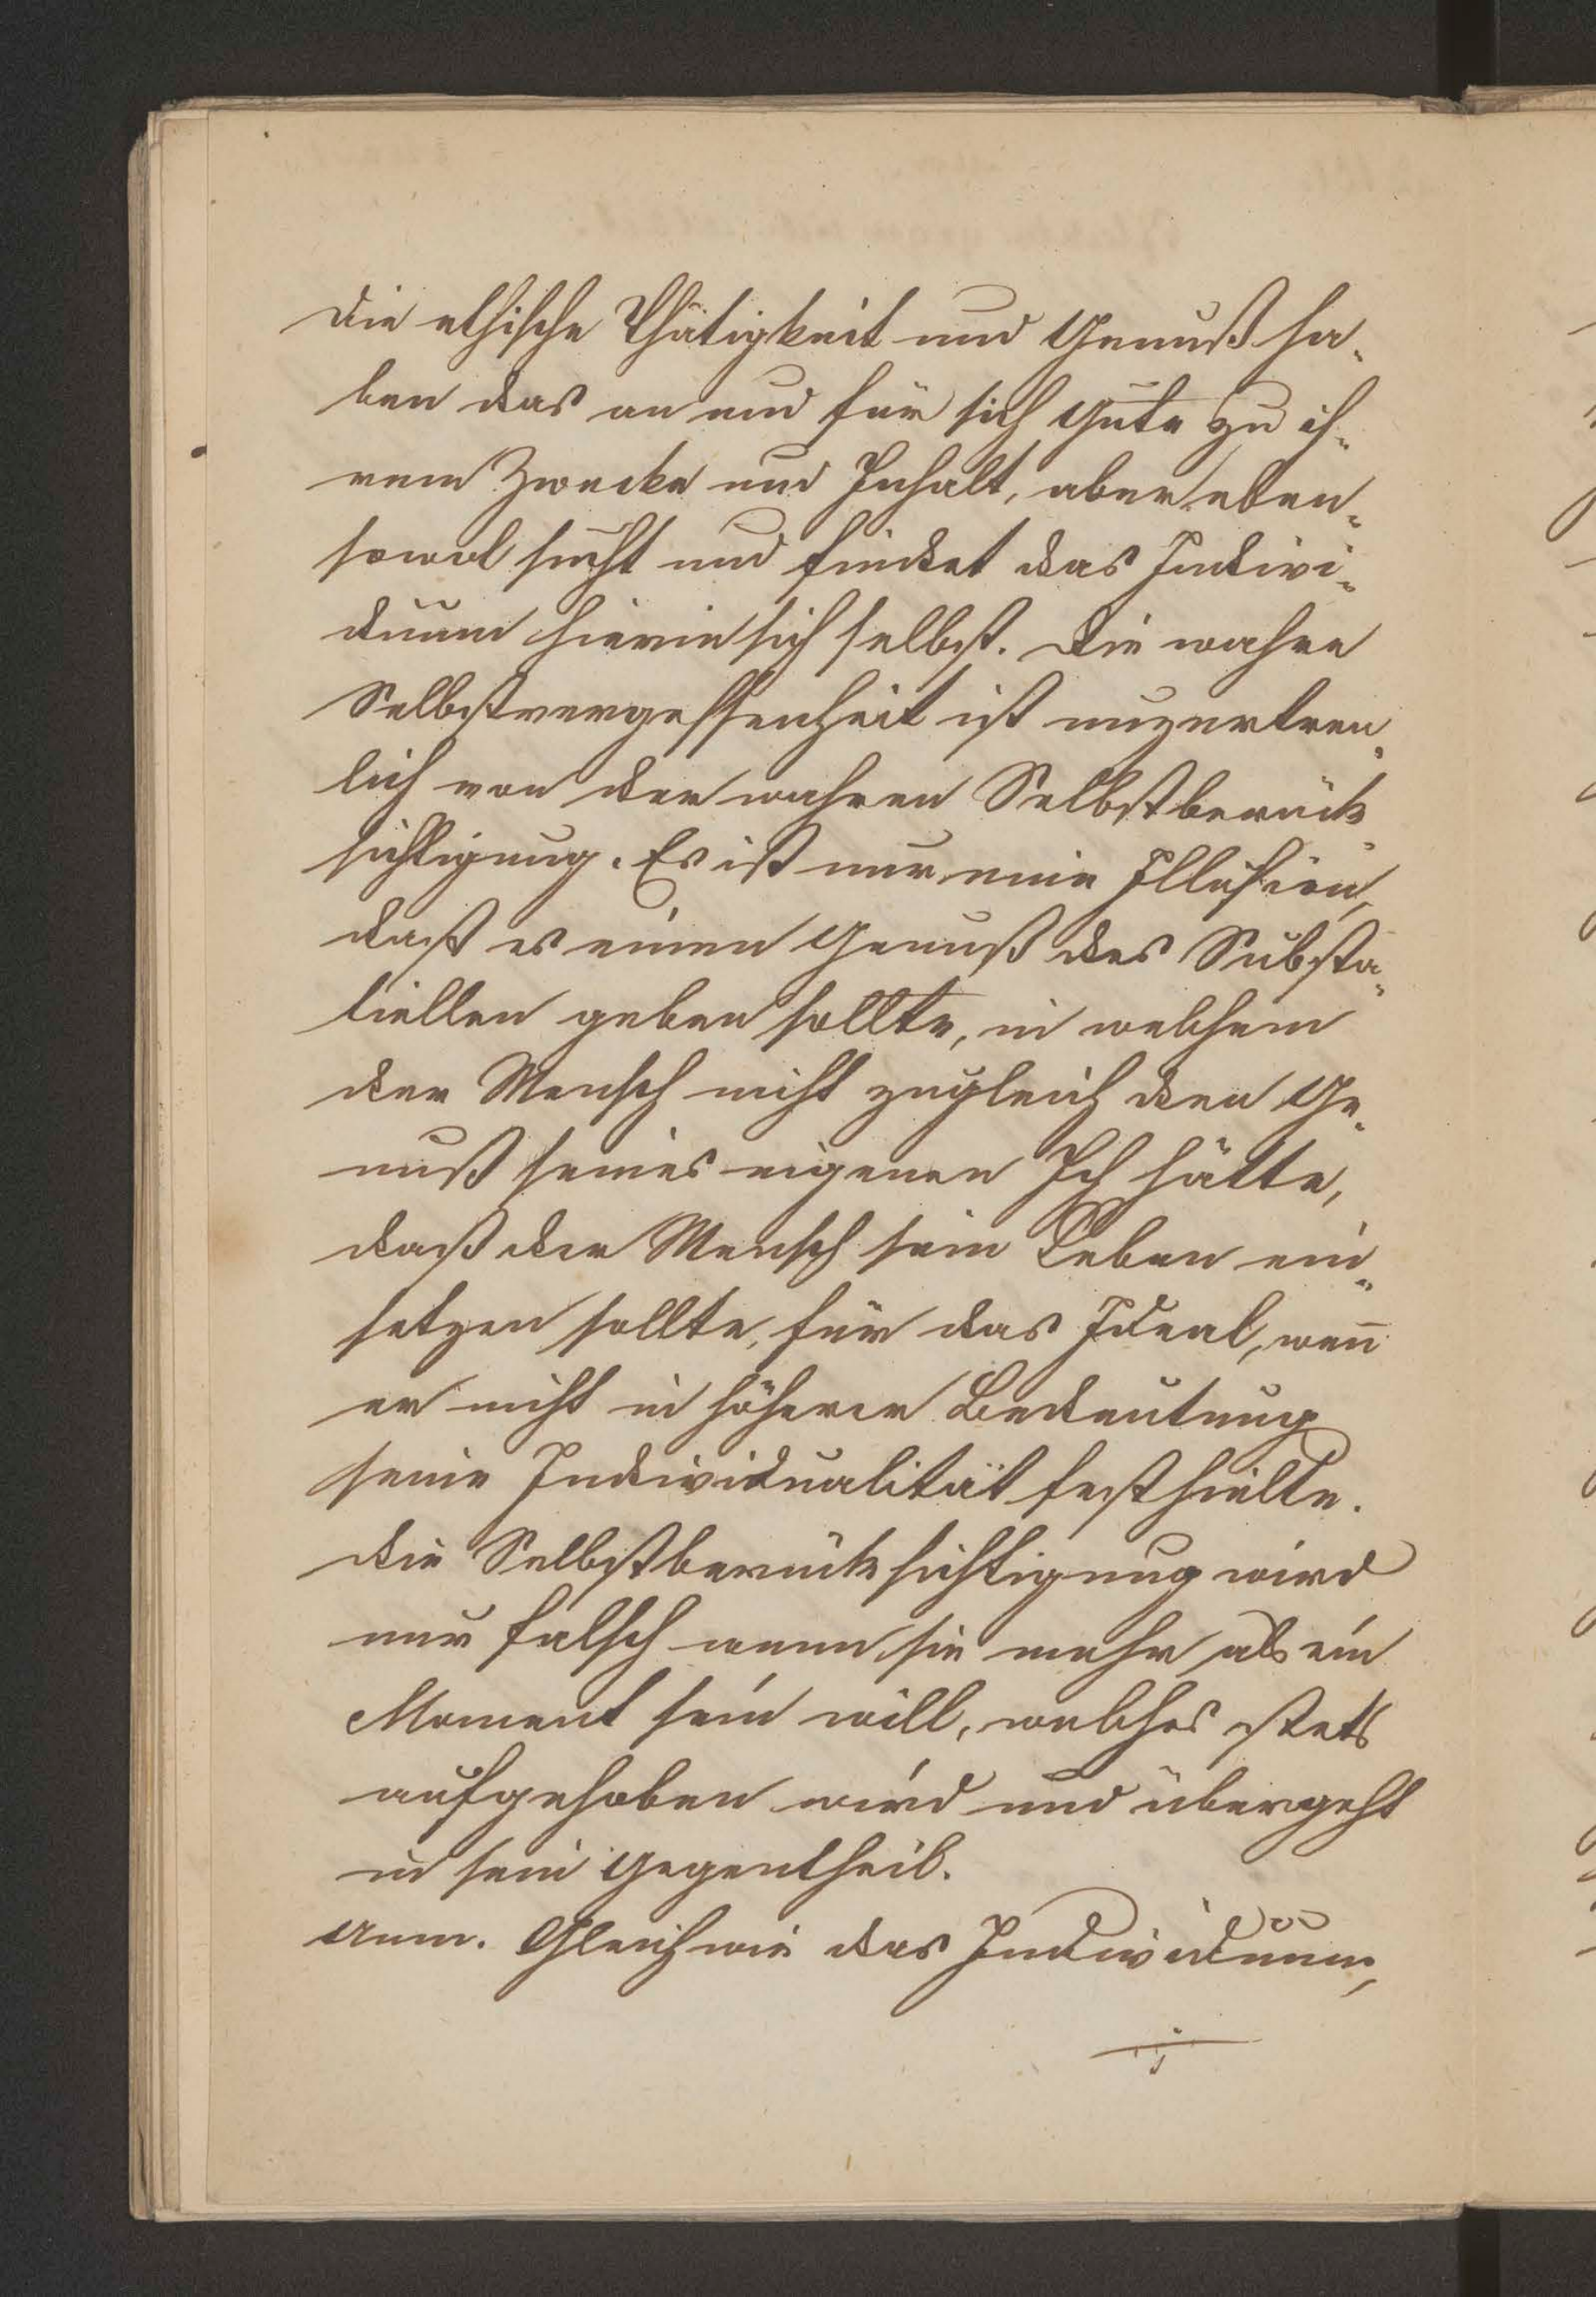 Die ethische Thätigkeit und Genuß ha-
ben das an und für sich Gute zu ih-
rem Zwecke und Inhalt, aber eben-
sowol sucht und findet das Indivi-
duum hierin sich selbst. Die wahre
Selbstvergessenheit ist unzertren-
lich von der wahren Selbstberück-
sichtigung. Es ist nur eine Illusion,
daß es einen Genuß des Substa-
tiellen geben sollte, in welchem
der Mensch nicht zugleich den Ge-
nuß seines eigenen Ich hätte,
daß der Mensch sein Leben ein-
setzen sollte, für das Ideal, wen̄
er nicht in höherer Bedeutung
seine Individualität festhielte.
Die Selbstberücksichtigung wird
nur falsch wenn sie mehr als ein
Moment sein will, welches stets
aufgehoben wird und übergeht
in sein Gegentheil.
Anm. Gleichwie das Individuum,